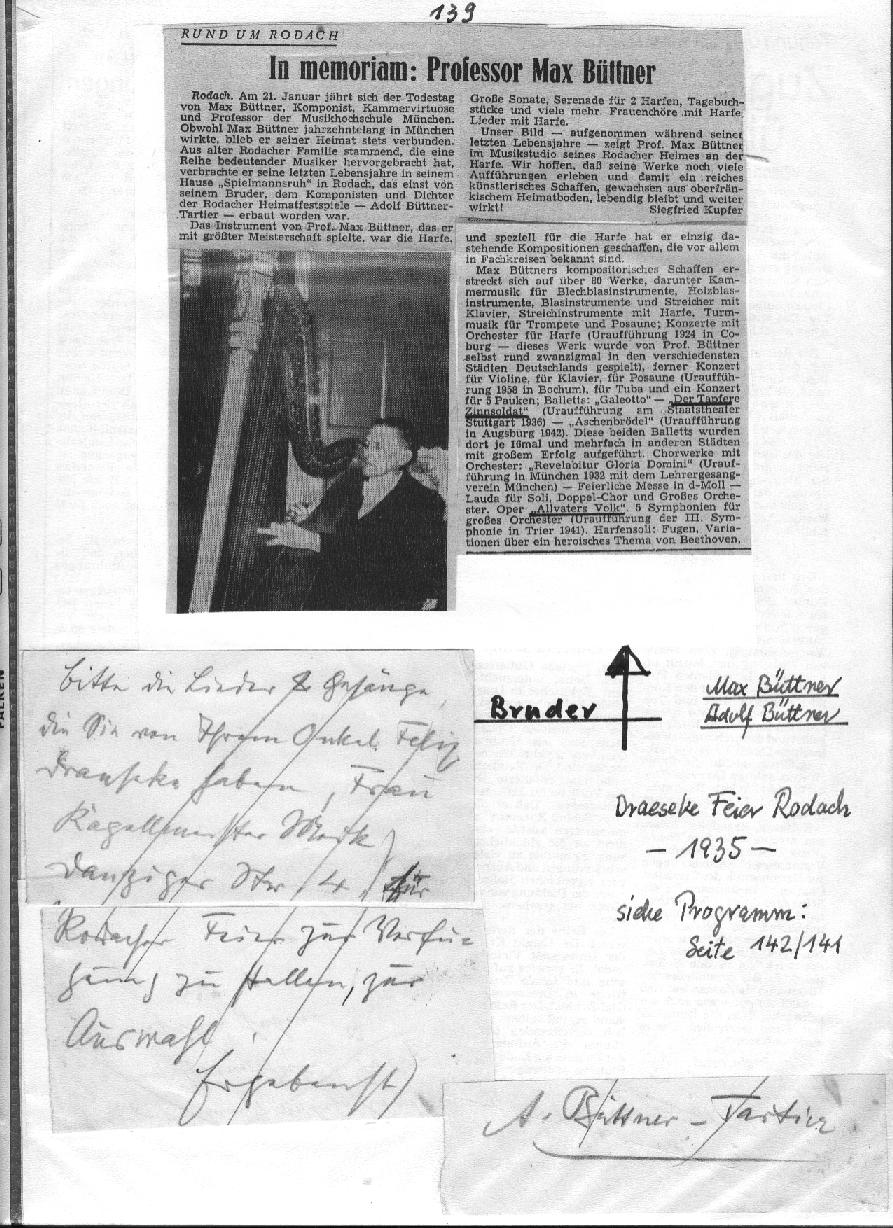 139
RUND UM RODACH
In memoriam: Professor Max Büttner
Rodach. Am 21. Januar jährt sich der Todestag
von Max Büttner, Komponist, Kammervirtuose
und Professor der Musikhochschule München.
Obwohl Max Büttner jahrzehntelang in München
wirkte, blieb er seiner Heimat stets verbunden.
Aus alter Rodacher Familie stammend, die eine
Reihe bedeutender Musiker hervorgebracht hat,
verbrachte er seine letzten Lebensjahre in seinem
Hause „Spielmannsruh" in Rodach, das einst von
seinem Bruder, dem Komponisten und Dichter
der Rodacher Heimatfestspiele — Adolf Büttner-
Tartier — erbaut worden war.
Das Instrument von Prof. Max Büttner, das er
mit größter Meisterschaft spielte, war die Harfe,
und speziell für die Harfe hat er einzig da-
stehende Kompositionen geschaffen, die vor allem
in Fachkreisen bekannt sind.
Max Büttners kompositorisches Schaffen er-
streckt sich auf über 80 Werke, darunter Kam-
mermusik für Blechblasinstrumente, Holzblas-
instrumente, Blasinstrumente und Streicher mit
Klavier, Streichinstrumente mit Harfe, Turm-
musik für Trompete und Posaune; Konzerte mit
Orchester für Harfe (Uraufführung 1924 in Co-
burg — dieses Werk wurde von Prof. Büttner
selbst rund zwanzigmal in den verschiedensten
Städten Deutschlands gespielt), ferner Konzert
für Violine, für Klavier, für Posaune (Urauffüh-
rung 1958 in Bochum), für Tuba und ein Konzert
für 5 Pauken; Balletts: „Galeotto" — „Der Tapfere
Zinnsoldat" (Uraufführung am Staatstheater
Stuttgart 1936) — „Aschenbrödel" (Uraufführung
in Augsburg 1942). Diese beiden Balletts wurden
dort je 16mal und mehrfach in anderen Städten
mit großem Erfolg aufgeführt. Chorwerke mit
Orchester: „Revelabitur Gloria Domini" (Urauf-
führung in München 1932 mit dem Lehrergesang-
verein München) — Feierliche Messe in d-Moll —
Lauda für Soli, Doppel-Chor und Großes Orche-
ster. Oper „Allvaters Volk". 5 Symphonien für
großes Orchester (Uraufführung der III. Sym-
phonie in Trier 1941). Harfensoli: Fugen, Varia-
tionen über ein heroisches Thema von Beethoven,
Große Sonate, Serenade für 2 Harfen, Tagebuch-
stücke und viele mehr Frauenchöre mit Harfe,
Lieder mit Harfe.
Unser Bild — aufgenommen während seiner
letzten Lebensjahre — zeigt Prof. Max Büttner
im Musikstudio seines Rodacher Heimes an der
Harfe. Wir hoffen, daß seine Werke noch viele
Aufführungen erleben und damit ein reiches
künstlerisches Schaffen, gewachsen aus oberfrän-
kischem Heimatboden, lebendig bleibt und weiter
wirkt! Siegfried Kupfer
bitte die Lieder & Gesänge,
die Sie von Ihrem Onkel Felix
Draeseke haben, Frau
Kapellmeister
Danziger Str. 4, für
Rodacher Feier zur Verfü-
gung zu stellen, zur
Auswahl.
Ergebenst)
A. Büttner-Tartier
Bruder
Max Büttner
Adolf Büttner
Draeseke Feier Rodach
— 1935 —
siehe Programm:
Seite 142/141
FALKEN